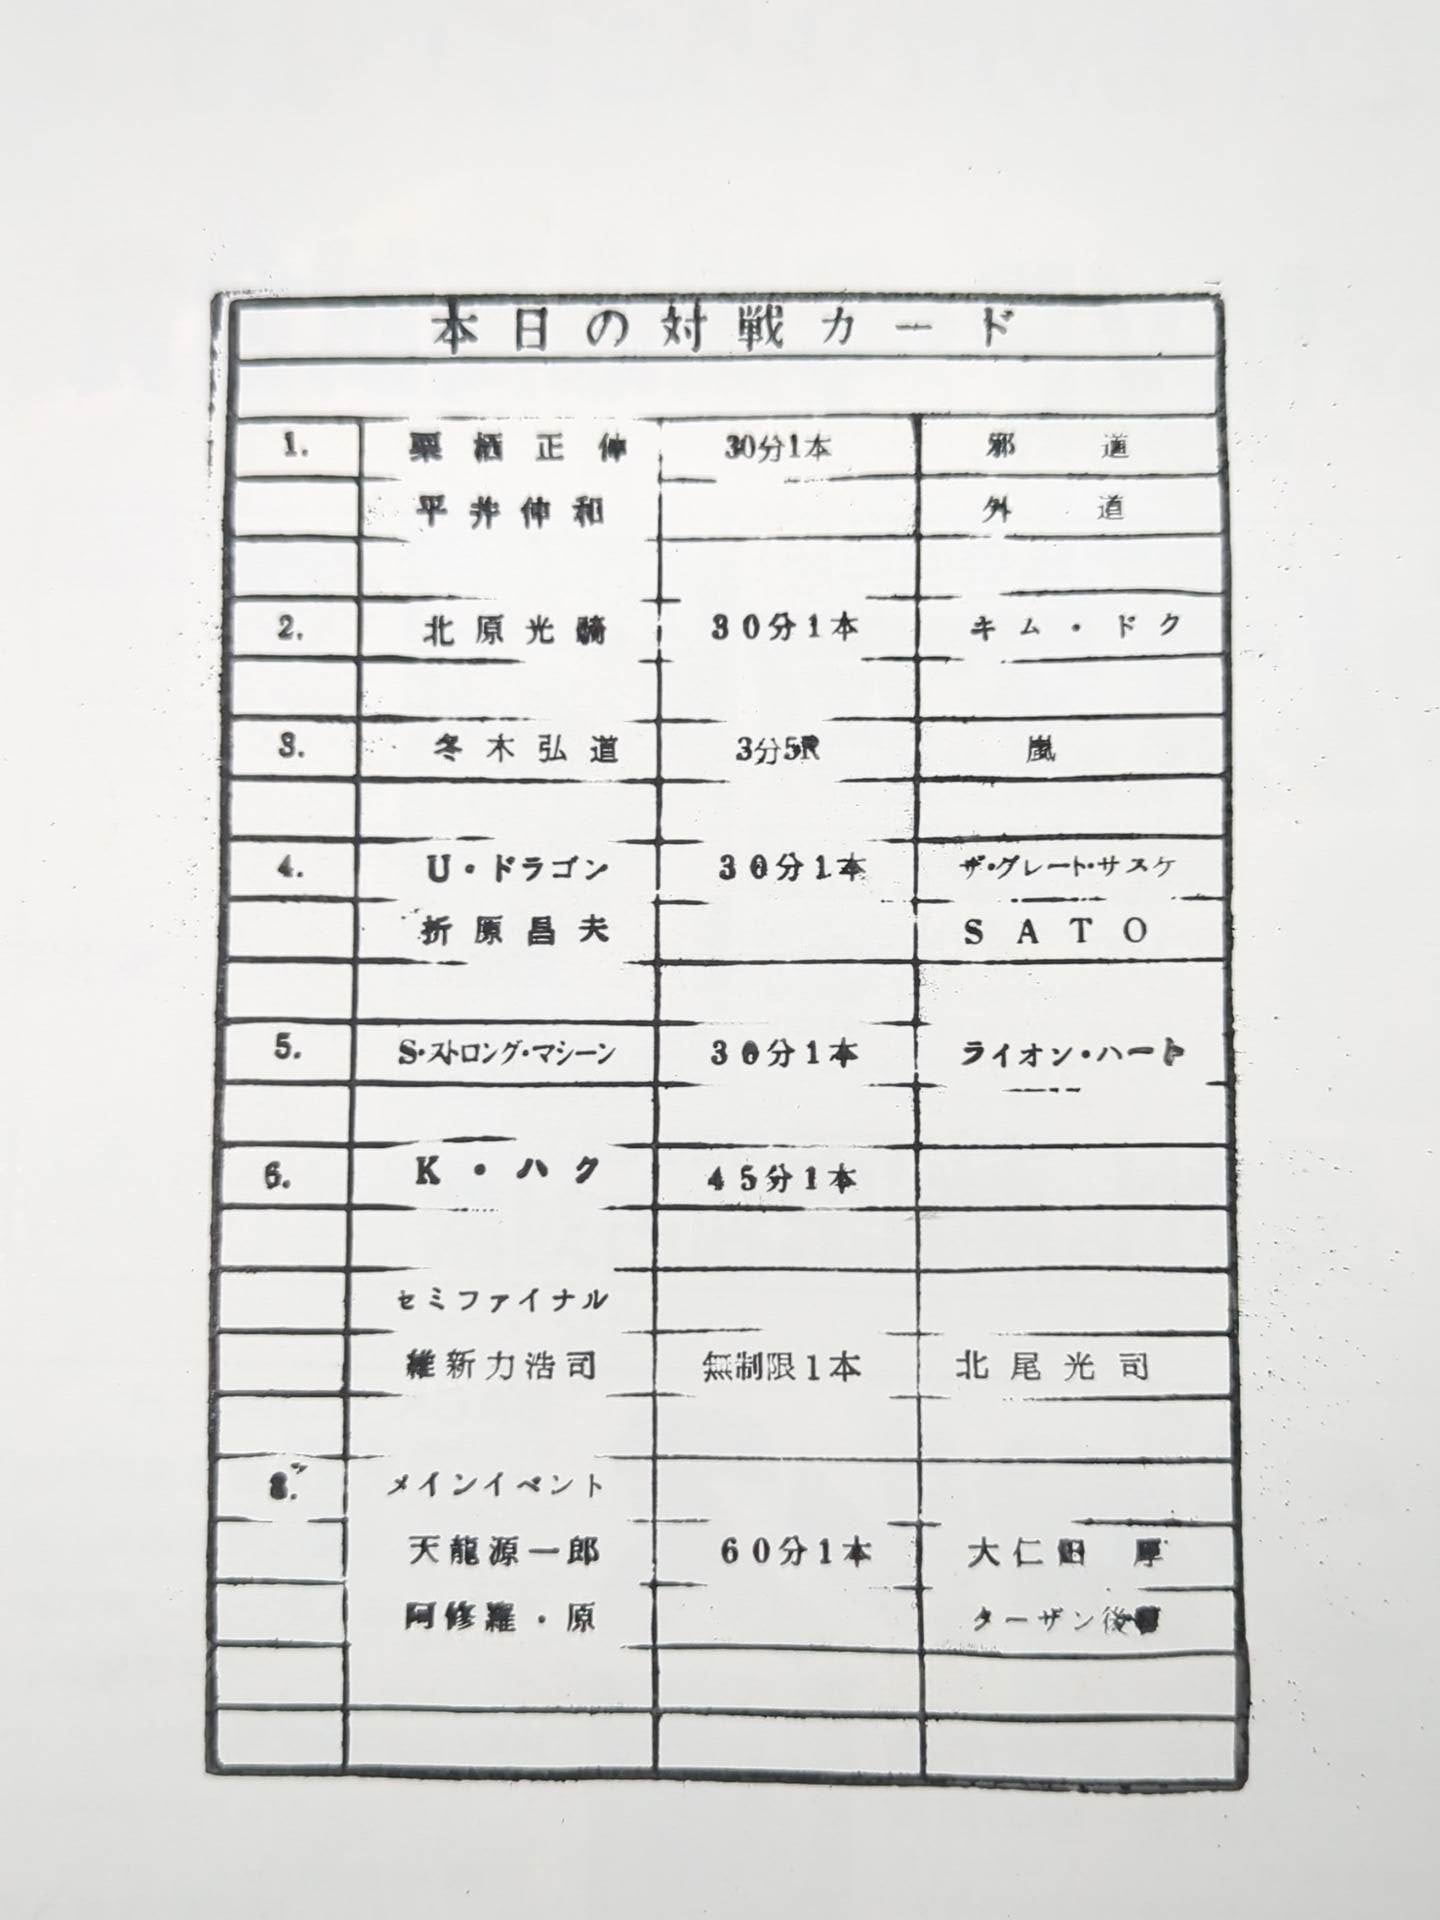 本日の対戦カード
1. 栗栖正伸 30分1本 邪道
平井伸和 外道
2. 北原光騎 30分1本 キム・ドク
3. 冬木弘道 3分5R 嵐
4. U・ドラゴン 30分1本 ザ・グレート・サスケ
折原昌夫 SATO
5. S・ストロング・マシーン 30分1本 ライオン・ハート
6. K・ハク 45分1本
セミファイナル
維新力浩司 無制限1本 北尾光司
8. メインイベント
天龍源一郎 60分1本 大仁田 厚
阿修羅・原 ターザン後